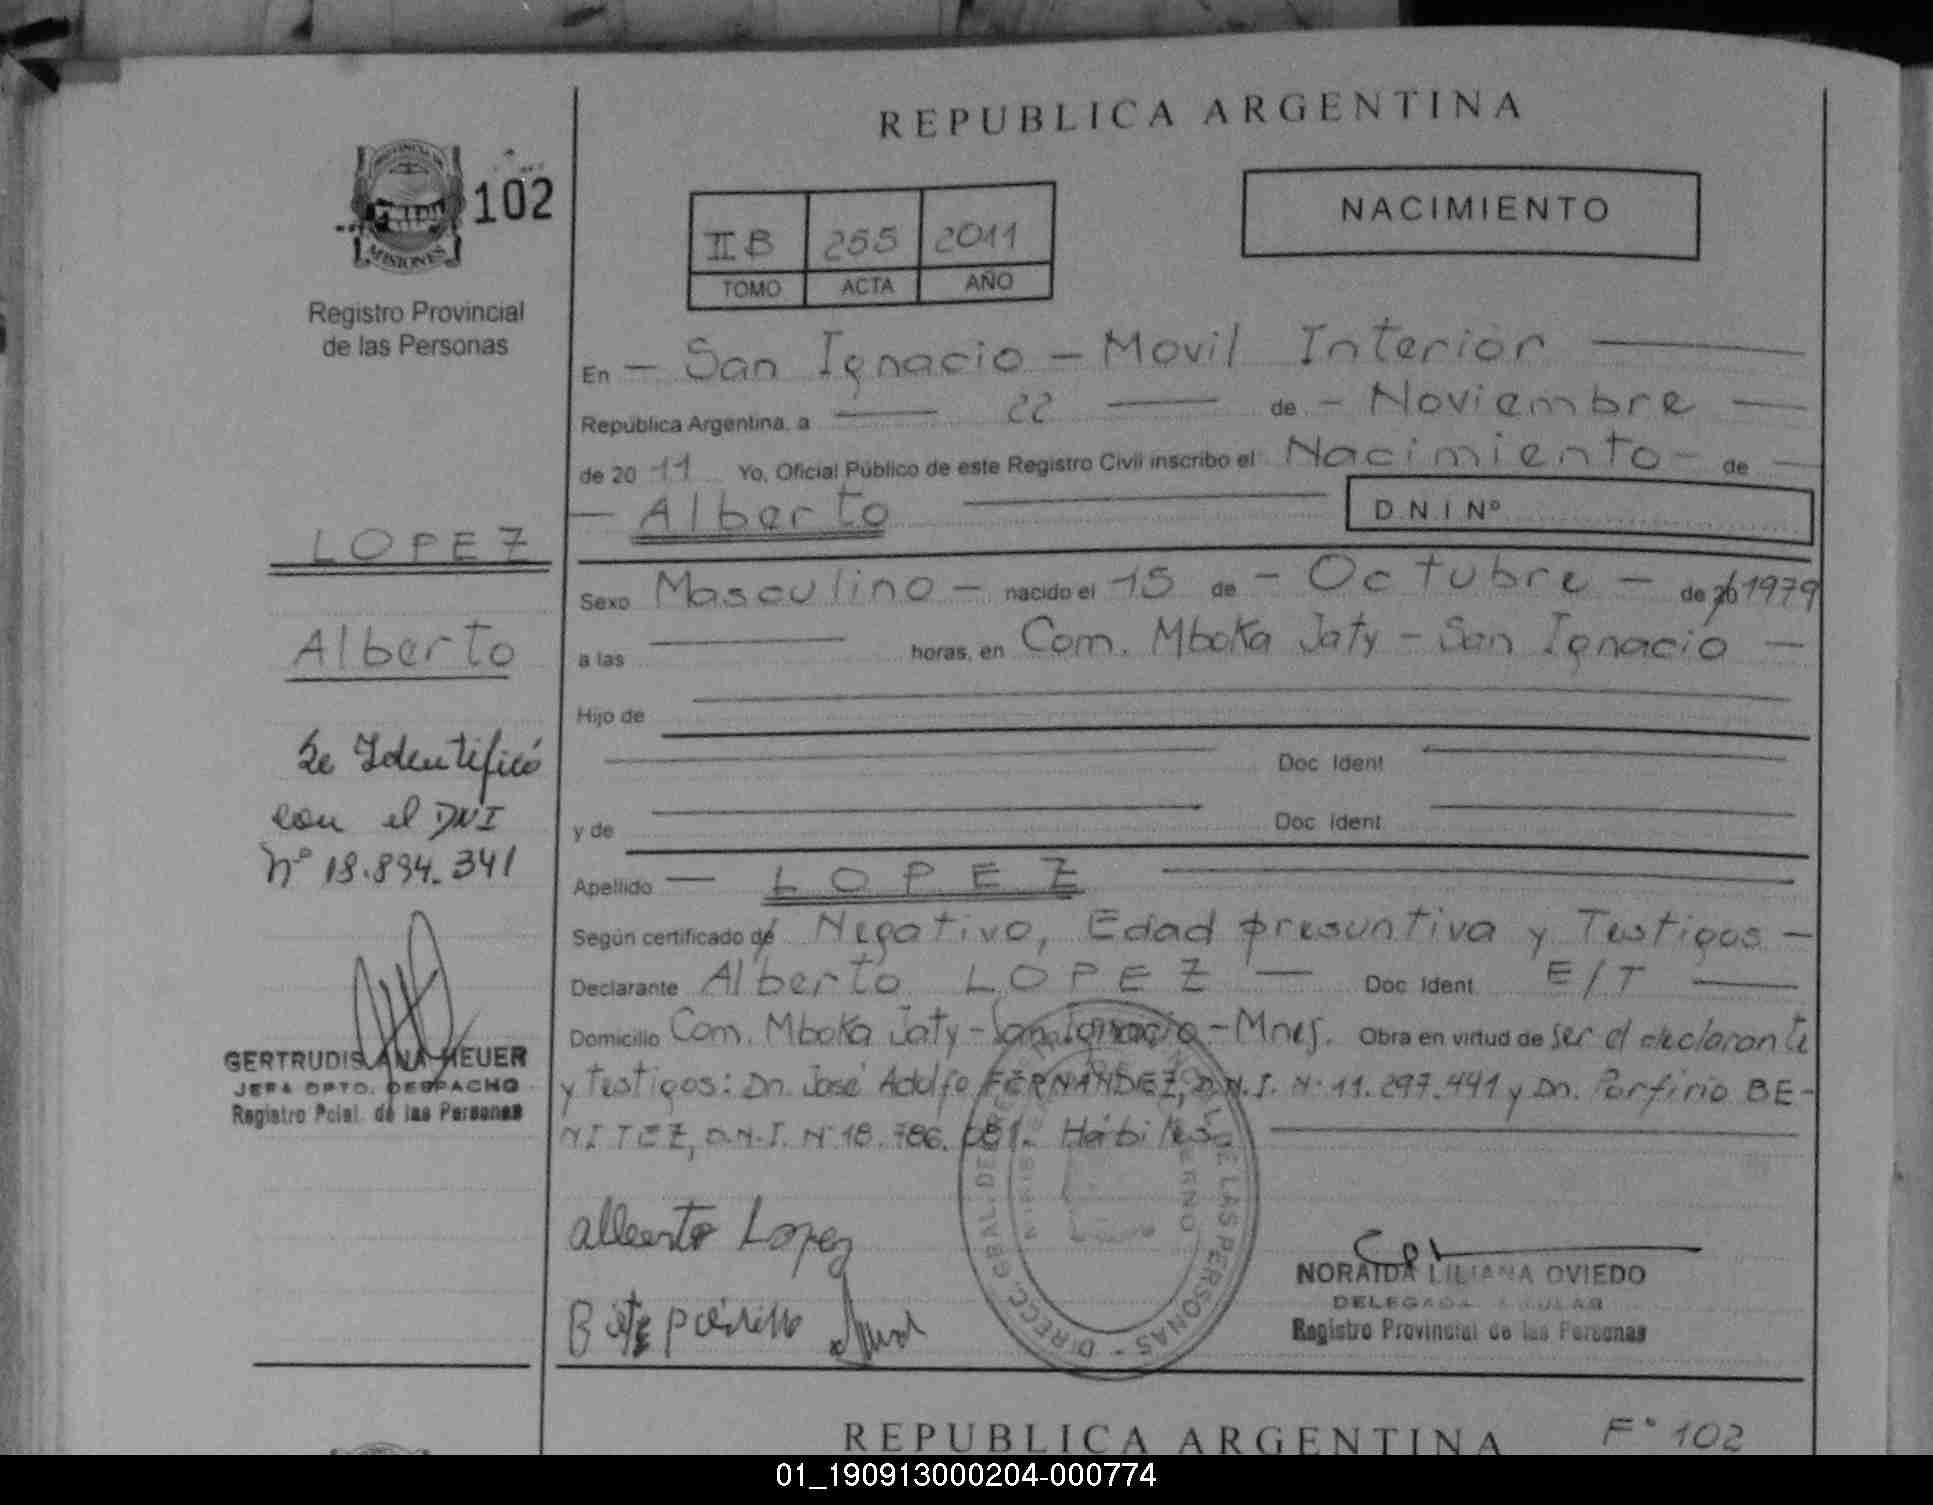 REPUBLICA ARGENTINA
PROVINCIA DE
MISIONES
102
Registro Provincial
de las Personas
NACIMIENTO
II B 255 2011
TOMO ACTA AÑO
En - San Ignacio - Movil Interior
República Argentina, a 22 de - Noviembre
de 20 11 Yo, Oficial Público de este Registro Civil inscribo el Nacimiento - de
- Alberto
D.N.I Nº
Sexo Masculino - nacido el 15 de - Octubre - de 20 1979
a las horas, en Com. Mboka Jaty - San Ignacio -
Hijo de
Doc Ident
y de Doc Ident
Apellido - LOPEZ
Según certificado de Negativo, Edad presuntiva y Testigos -
Declarante Alberto LOPEZ - Doc Ident E/T
Domicilio Com. Mboka Jaty - San Ignacio - Mnes. Obra en virtud de ser el declarante
y testigos: Dn. José Adolfo FERNANDEZ, D.N.I. Nº 11.297.441 y Dn. Porfirio BE-
NITEZ, D.N.I. Nº 18.786.081. Hábiles
LOPEZ
Alberto
Se Identificó
con el DNI
Nº 18.894.341
GERTRUDIS ANA HEUER
JEFA DPTO. DESPACHO
Registro Pcial. de las Personas
alberto Lopez
DIRECC. GRAL. DE DE LAS PERSONAS
NORAIDA LILIANA OVIEDO
DELEGADA TITULAR
Registro Provincial de las Personas
REPUBLICA ARGENTINA
Fº 102
01_190913000204-000774